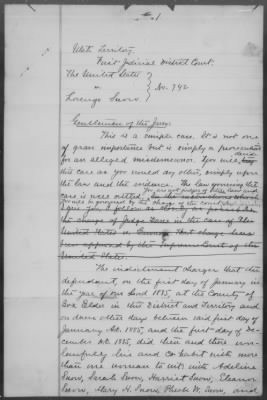 #1
Utah Territory
First Judicial District Court.
The United States
vs. No. 742
Lorenzo Snow.
Gentlemen of the Jury:
This is a simple case. It is not one
of grave importance but is simply a prosecution
for an alleged misdemeanor. You will
this case as you would any other, simply upon
the law and the evidence. The law governing this
case is well settled
the charge of Judge Zane in the case of The
United States vs. Cannon. That charge
been approved by the Supreme Court of the
United States.
The indictment charges that the
defendant, on the first day of January in
the year of our Lord 1885, at the County of
Box Elder in the District and Territory and
on divers other days between said first day of
January A.D. 1885, and the first day of De-
cember A.D. 1885, did then and there un-
lawfully live and cohabit with more
than one woman to wit with Adeline
Snow, Sarah Snow, Harriet Snow, Eleanor
Snow, Mary H. Snow, Phoebe W. Snow, and